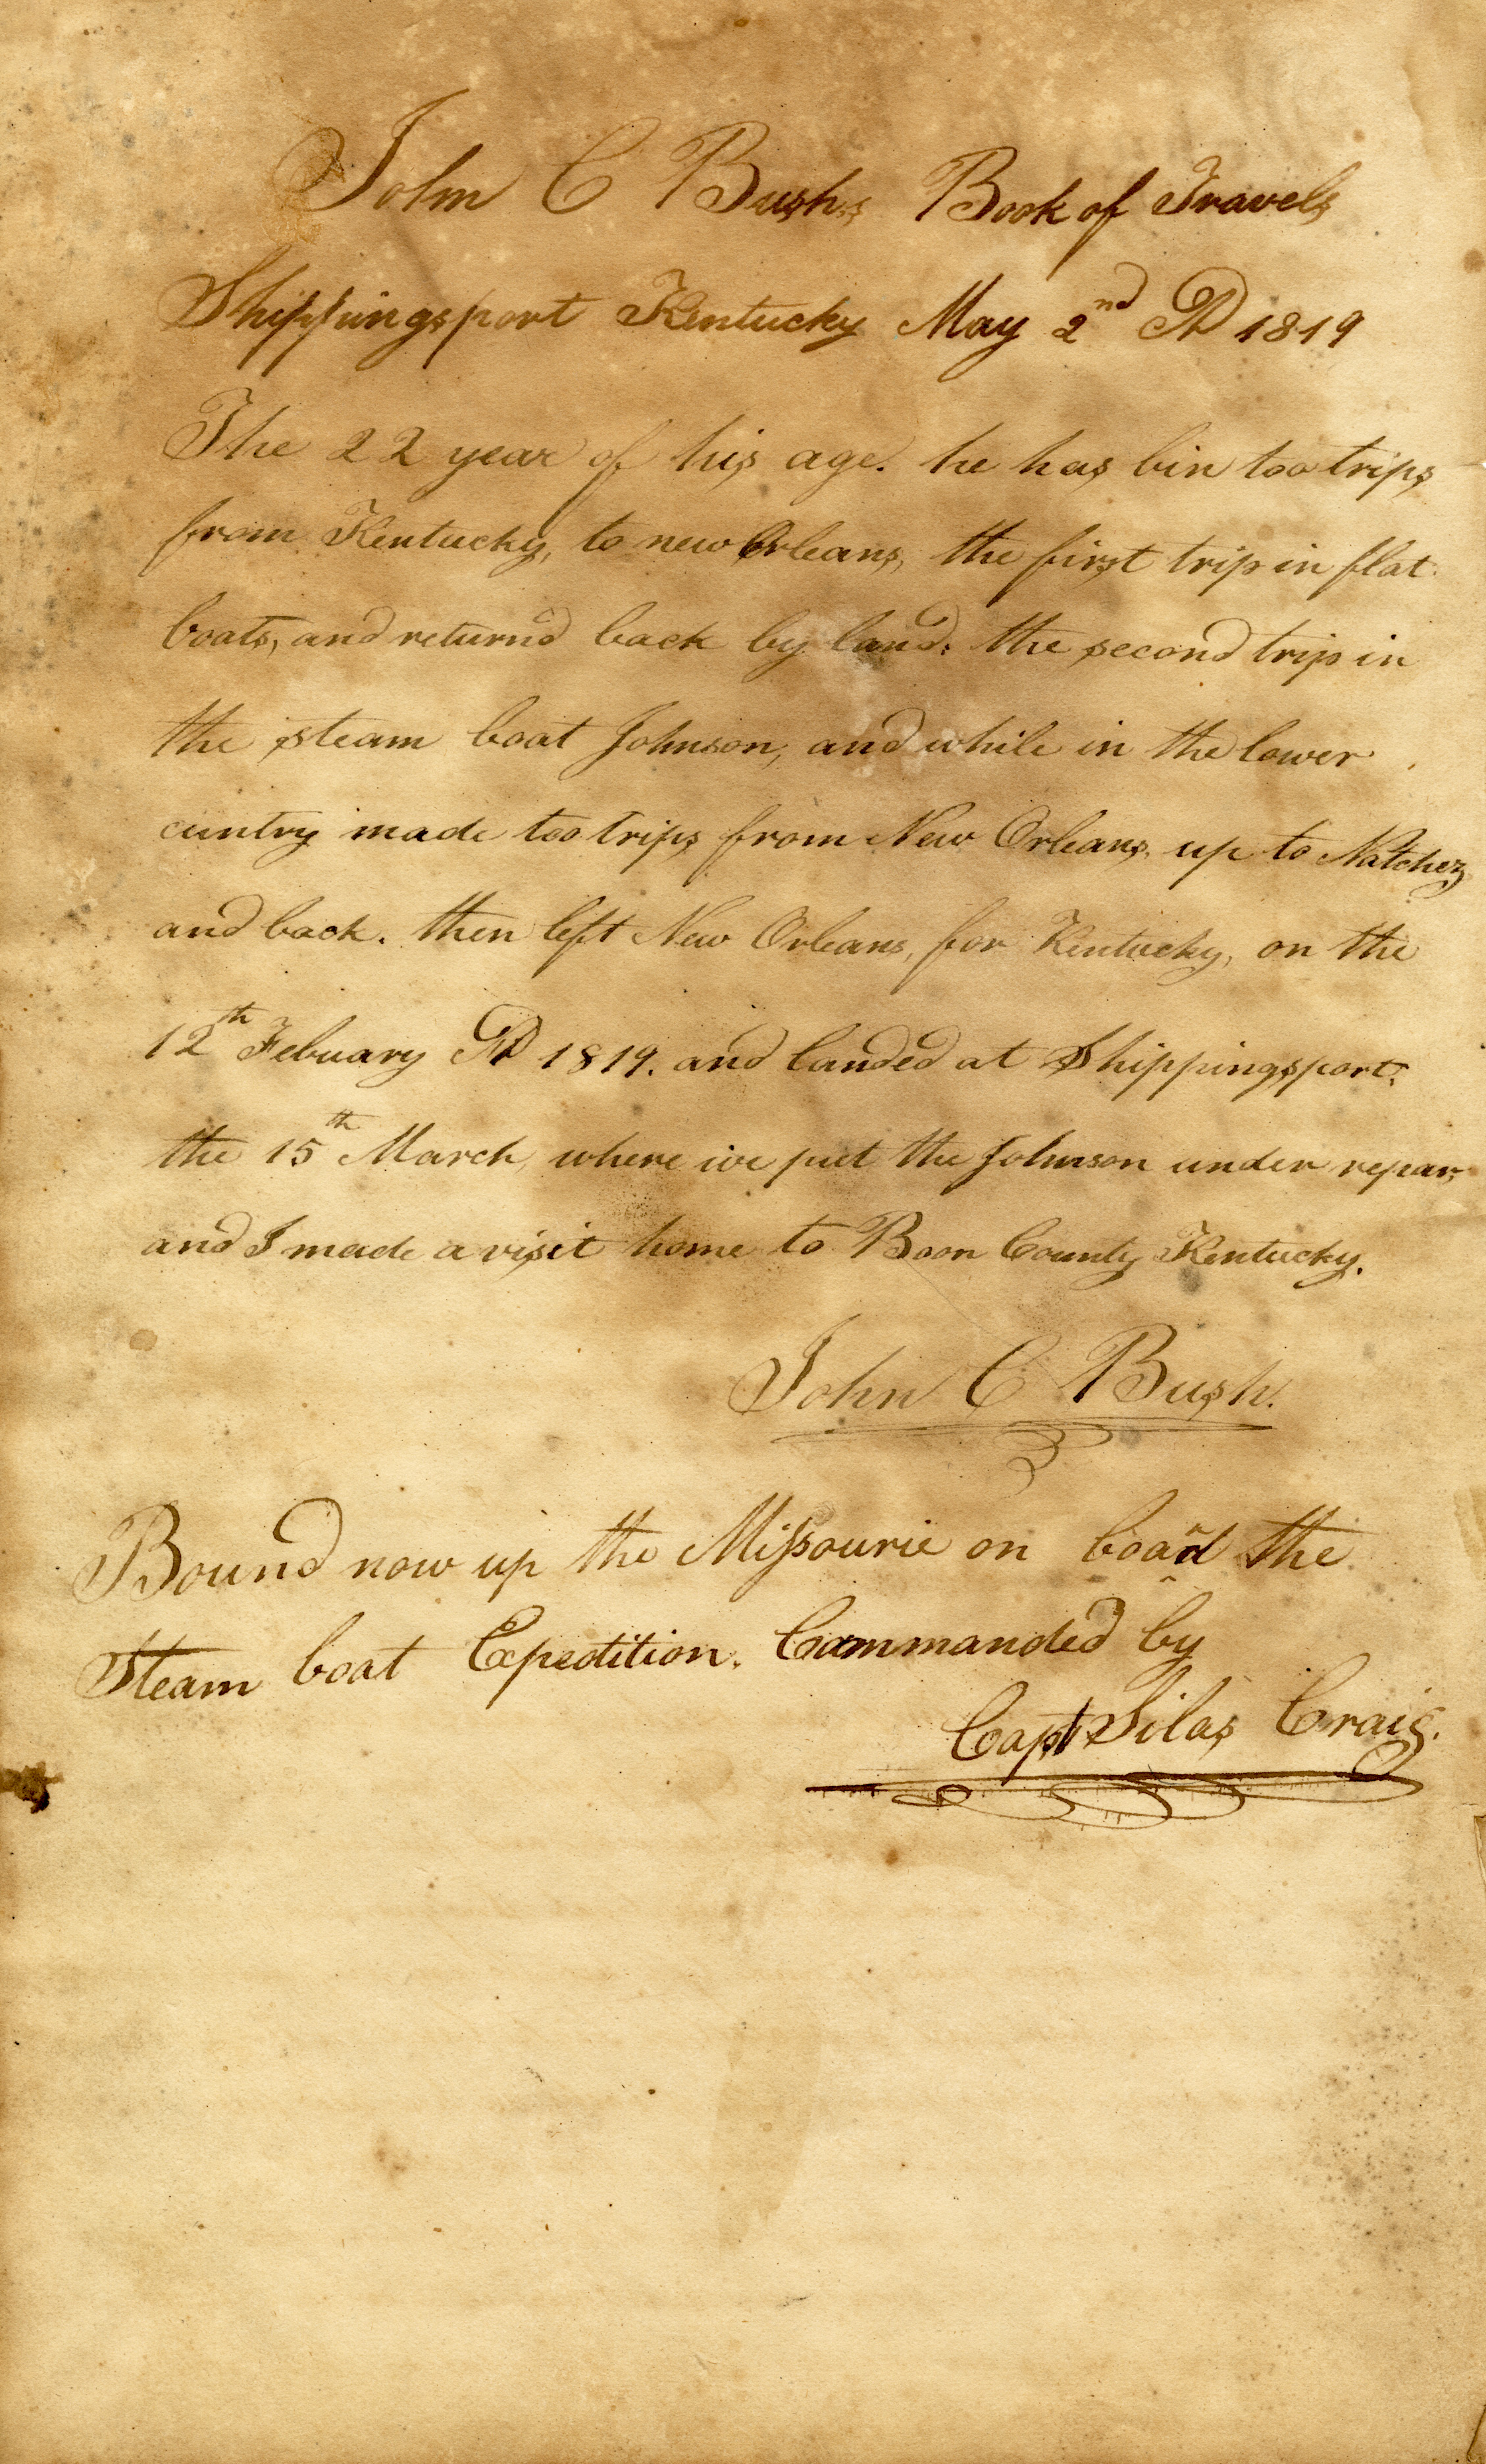 John C Bush,s Book of Travels
Shippingsport Kentucky May 2nd AD 1819
The 22 year of his age. he has bin too trips
from Kentucky, to new Orleans, the first trip in flat
boats, and returnd back by land. the second trip in
the steam boat Johnson, and while in the lower
cuntry made too trips from New Orleans, up to Natchez
and back. then left New Orleans, for Kentucky, on the
12th Febuary AD 1819. and landed at Shippingsport.
the 15th March, where we put the Johnson under repar,
and I made a visit home to Boon County Kentucky.
John C Bush.
Bound now up the Missourie on board the
Steam boat Expedition. Commanded by
Capt Silas Craig.